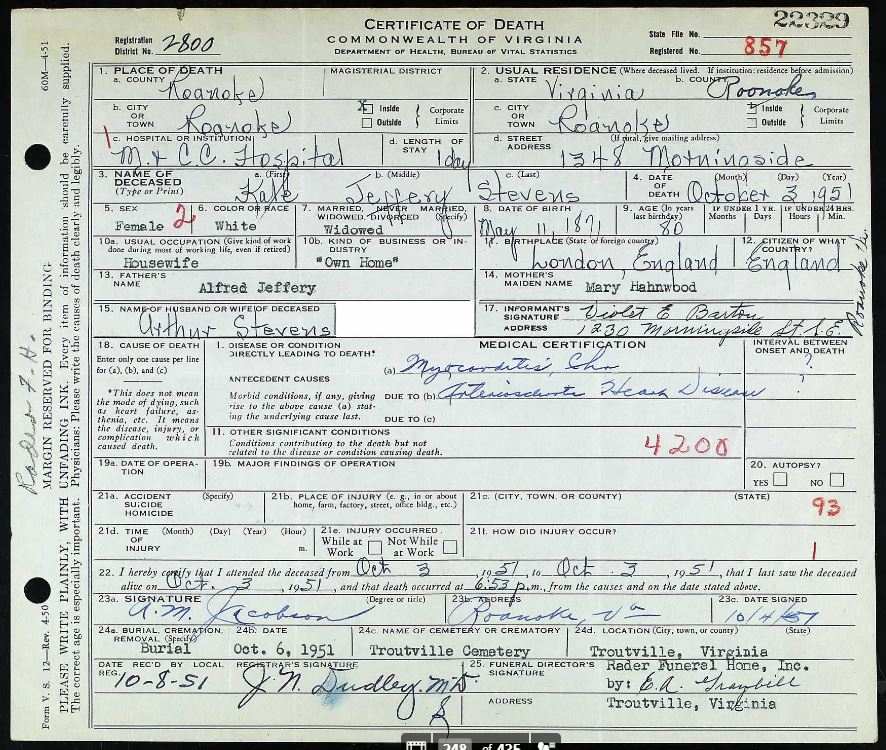 22329
CERTIFICATE OF DEATH
COMMONWEALTH OF VIRGINIA
DEPARTMENT OF HEALTH, BUREAU OF VITAL STATISTICS
Registration District No. 2800
State File No.
Registered No. 857
1. PLACE OF DEATH
a. COUNTY Roanoke
MAGISTERIAL DISTRICT
2. USUAL RESIDENCE (Where deceased lived. If institution: residence before admission)
a. STATE Virginia b. COUNTY Roanoke
b. CITY OR TOWN Roanoke
X Inside
Outside
Corporate Limits
c. CITY OR TOWN Roanoke
Inside
Outside
Corporate Limits
1
c. HOSPITAL OR INSTITUTION M. & C.C. Hospital
d. LENGTH OF STAY 1 day
d. STREET ADDRESS (If rural, give mailing address)
1348 Morningside
3. NAME OF DECEASED (Type or Print)
a. (First) b. (Middle) c. (Last)
Kate Jeffery Stevens
4. DATE OF DEATH (Month) (Day) (Year)
October 3 1951
5. SEX
Female 2
6. COLOR OR RACE
White
7. MARRIED, NEVER MARRIED, WIDOWED, DIVORCED (Specify)
Widowed
8. DATE OF BIRTH
May 11, 1871
9. AGE (In years last birthday)
80
IF UNDER 1 YR. Months Days
IF UNDER 24 HRS. Hours Min.
10a. USUAL OCCUPATION (Give kind of work done during most of working life, even if retired)
Housewife
10b. KIND OF BUSINESS OR INDUSTRY
"Own Home"
11. BIRTHPLACE (State or foreign country)
London, England
12. CITIZEN OF WHAT COUNTRY?
England
13. FATHER'S NAME
Alfred Jeffery
14. MOTHER'S MAIDEN NAME
Mary Hahnwood
15. NAME OF HUSBAND OR WIFE OF DECEASED
Arthur Stevens
17. INFORMANT'S SIGNATURE Violet E Barton
ADDRESS 1230 Morningside St S.E.
Roanoke Va
18. CAUSE OF DEATH
Enter only one cause per line for (a), (b), and (c)
*This does not mean the mode of dying, such as heart failure, asthenia, etc. It means the disease, injury, or complication which caused death.
MEDICAL CERTIFICATION
INTERVAL BETWEEN ONSET AND DEATH
I. DISEASE OR CONDITION DIRECTLY LEADING TO DEATH*
(a) Myocarditis, Chr ?
ANTECEDENT CAUSES
Morbid conditions, if any, giving rise to the above cause (a) stating the underlying cause last.
DUE TO (b) Arteriosclerotic Heart Disease ?
DUE TO (c)
11. OTHER SIGNIFICANT CONDITIONS
Conditions contributing to the death but not related to the disease or condition causing death.
4200
19a. DATE OF OPERATION
19b. MAJOR FINDINGS OF OPERATION
20. AUTOPSY?
YES NO
21a. ACCIDENT SUICIDE HOMICIDE (Specify)
21b. PLACE OF INJURY (e. g., in or about home, farm, factory, street, office bldg., etc.)
21c. (CITY, TOWN, OR COUNTY) (STATE)
93
21d. TIME OF INJURY (Month) (Day) (Year) (Hour) m.
21e. INJURY OCCURRED.
While at Work Not While at Work
21f. HOW DID INJURY OCCUR?
1
22. I hereby certify that I attended the deceased from Oct 3, 1951, to Oct. 3, 1951, that I last saw the deceased
alive on Oct. 3, 1951, and that death occurred at 6:53 p.m., from the causes and on the date stated above.
23a. SIGNATURE (Degree or title)
A. M. Jacobson
23b. ADDRESS
Roanoke, Va
23c. DATE SIGNED
10/4/51
24a. BURIAL, CREMATION, REMOVAL (Specify)
Burial
24b. DATE
Oct. 6, 1951
24c. NAME OF CEMETERY OR CREMATORY
Troutville Cemetery
24d. LOCATION (City, town, or county) (State)
Troutville, Virginia
DATE REC'D BY LOCAL REG. 10-8-51
REGISTRAR'S SIGNATURE
J. N. Dudley, M.D.
25. FUNERAL DIRECTOR'S SIGNATURE
Rader Funeral Home, Inc.
by: E.A. Graybill
ADDRESS
Troutville, Virginia
60M—4-51
MARGIN RESERVED FOR BINDING
Rader F. H.
PLEASE WRITE PLAINLY, WITH UNFADING INK. Every item of information should be carefully supplied.
The correct age is especially important. Physicians: Please write the causes of death clearly and legibly.
Form V. S. 12—Rev. 4-50
248 of 425